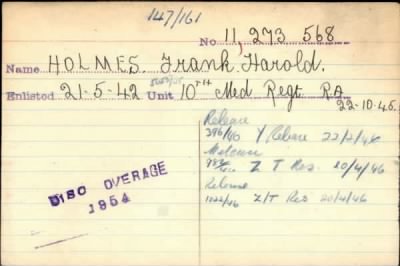 147/161
No 11,273 568
Name HOLMES. Frank Harold.
Enlisted 21-5-42 Unit 10TH Med Regt. RA
22-10-45.
Release
396/40 Y Release 22/2/46
Z T Res. 10/4/46
Release
1022/46 Z/T Res 20/4/46
DISC OVERAGE
1954